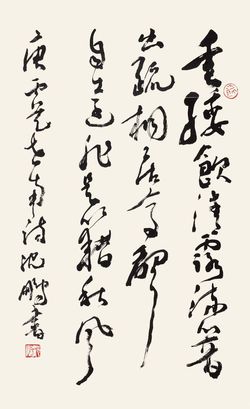 垂緌飲清露流響
出疏桐居高聲
自遠非是藉秋風
唐虞世南詩沈鵬書